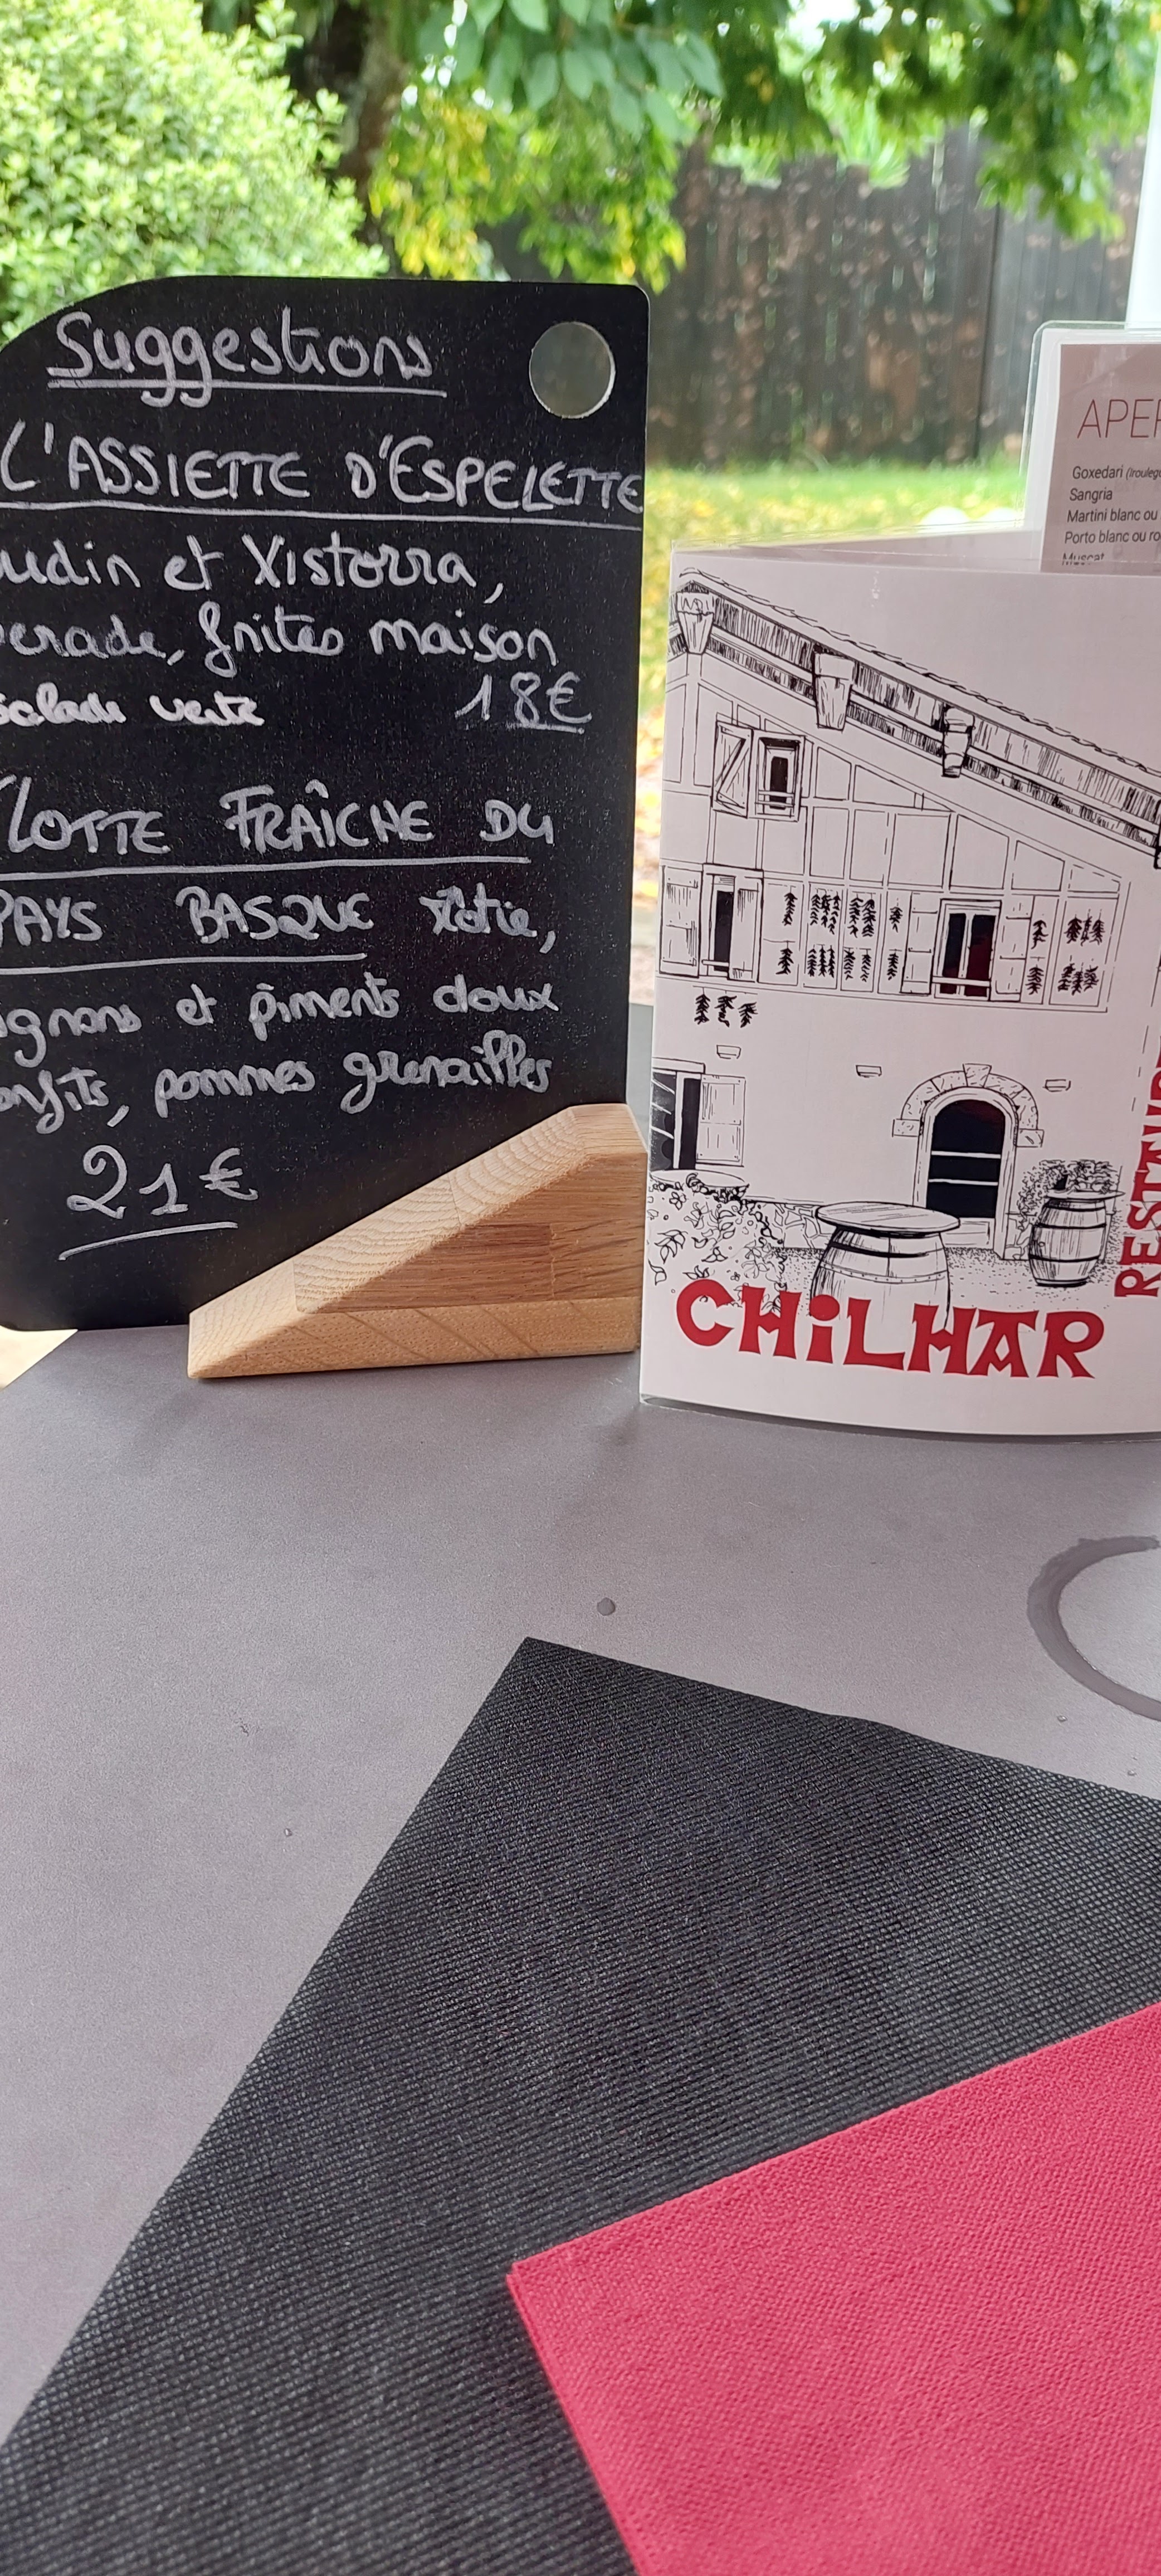 Suggestions
L'ASSIETTE D'ESPELETTE
udin et Xistorra,
perade, frites maison
salade verte 18€
LOTTE FRAÎCHE DU
PAYS BASQUE rôtie,
ignons et piments doux
onfits, pommes grenailles
21€
APER
Goxedari (Iroulegu
Sangria
Martini blanc ou
Porto blanc ou ro
Muscat
CHiLHAR
RESTAUR